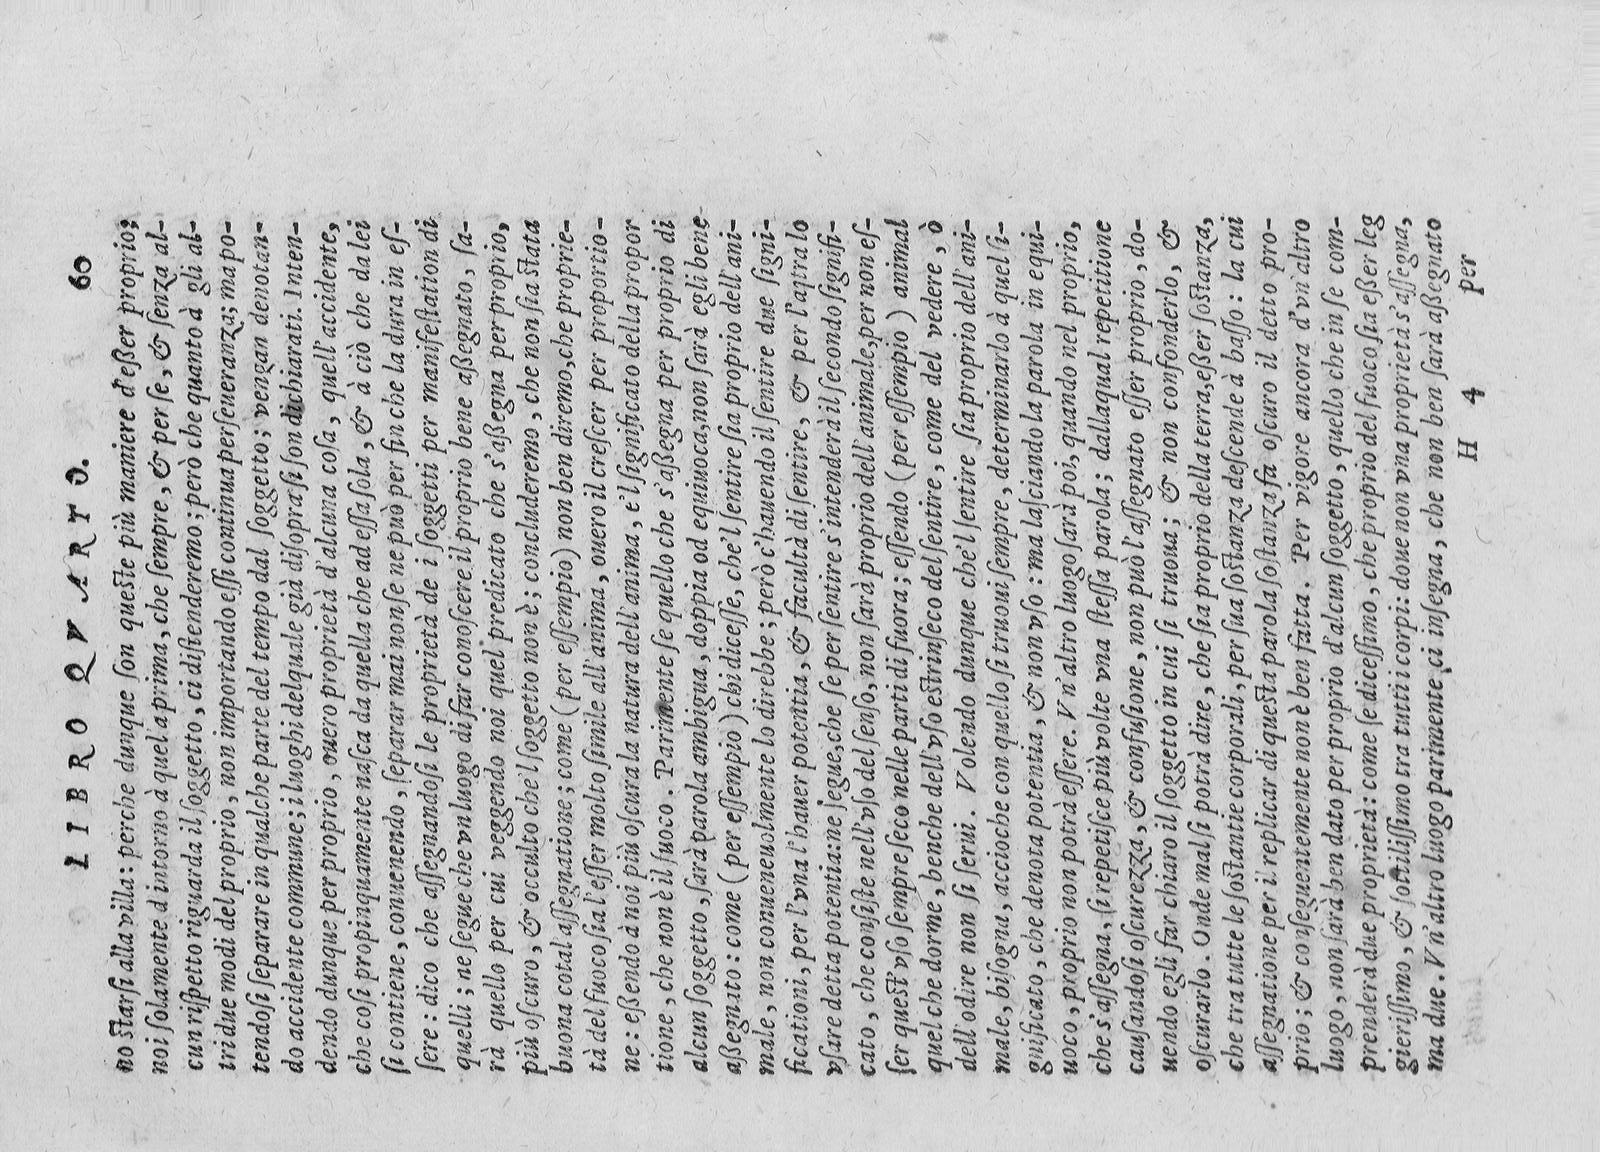 LIBRO QVARTO. 60
no starsi alla villa: perche dunque son queste più maniere d'eßer proprio;
noi solamente d'intorno à quel'a prima, che sempre, & per se, & senza al-
cun rispetto riguarda il soggetto, ci distenderemo; però che quanto à gli al-
tri due modi del proprio, non importando esse continua perseueranza; ma po-
tendosi separare in qualche parte del tempo dal soggetto; vengan denotan-
do accidente commune; i luoghi delquale già disopra si son dichiarati. Inten-
dendo dunque per proprio, ouero proprietà d'alcuna cosa, quell'accidente,
che cosi propinquamente nasca da quella che ad essa sola, & à ciò che da lei
si contiene, conuenendo, separar mai non se ne può per fin che la dura in es-
sere: dico che assegnandosi le proprietà de i soggetti per manifestation di
quelli; ne segue che vn luogo di far conoscere il proprio bene aßegnato, sa-
rà quello per cui veggendo noi quel predicato che s'aßegna per proprio,
più oscuro, & occulto che'l soggetto non è; concluderemo, che non sia stata
buona cotal assegnatione; come (per essempio) non ben diremo, che proprie-
tà del fuoco sia l'esser molto simile all'anima, ouero il crescer per proportio-
ne: eßendo à noi più oscura la natura dell'anima, e'l significato della propor
tione, che non è il fuoco. Parimente se quello che s'aßegna per proprio di
alcun soggetto, sarà parola ambigua, doppia od equiuoca, non sarà egli bene
aßegnato: come (per essempio) chi dicesse, che'l sentire sia proprio dell'ani-
male, non conueneuolmente lo direbbe; però c'hauendo il sentire due signi-
ficationi, per l'vna l'hauer potentia, & facultà di sentire, & per l'altra lo
vsare detta potentia: ne segue, che se per sentire s'intenderà il secondo signifi-
cato, che consiste nell'vso del senso, non sarà proprio dell'animale, per non es-
ser quest'vso sempre seco nelle parti di fuora; essendo (per essempio) animal
quel che dorme, benche dell'vso estrinseco del sentire, come del vedere, ò
dell'odire non si serui. Volendo dunque che'l sentire sia proprio dell'ani-
male, bisogna, accioche con quello si truoui sempre, determinarlo à quel si-
gnificato, che denota potentia, & non vso: ma lasciando la parola in equi-
uoco, proprio non potrà essere. Vn'altro luogo sarà poi, quando nel proprio,
che s'assegna, si repetisce più volte vna stessa parola; dallaqual repetitione
causandosi oscurezza, & confusione, non può l'assegnato esser proprio, do-
uendo egli far chiaro il soggetto in cui si truoua; & non confonderlo, &
oscurarlo. Onde mal si potrà dire, che sia proprio della terra, eßer sostanza,
che tra tutte le sostantie corporali, per sua sostanza descende à basso: la cui
assegnatione per il replicar di questa parola sostanza fa oscuro il detto pro-
prio; & conseguentemente non è ben fatta. Per vigore ancora d'vn'altro
luogo, non sarà ben dato per proprio d'alcun soggetto, quello che in se com-
prenderà due proprietà: come se dicessimo, che proprio del fuoco sia eßer leg
gierissimo, & sottilissimo tra tutti i corpi: doue non vna proprietà s'assegna,
ma due. Vn'altro luogo parimente ci insegna, che non ben sarà aßegnato
H 4 per